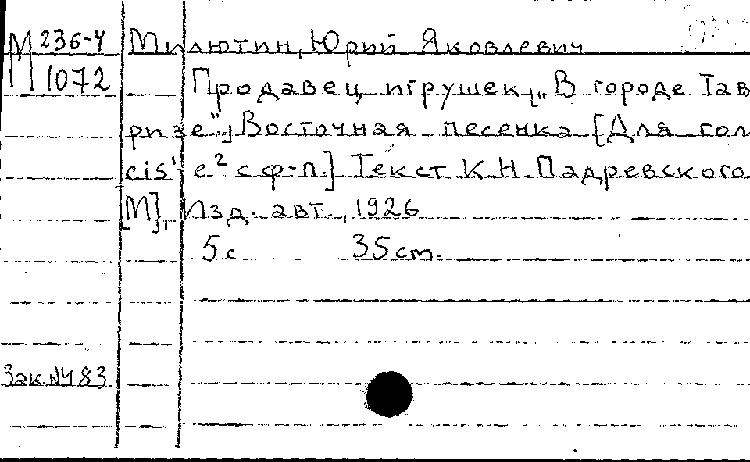 М 236-4 Милютин, Юрий Яковлевич
1072 Продавец игрушек, „В городе Тав
ризе", Восточная песенка [Для гол
cis¹ e² с ф-п.] Текст К.Н. Падревского
[М], Изд. авт., 1926
5с 35cm.
Зак. № 483